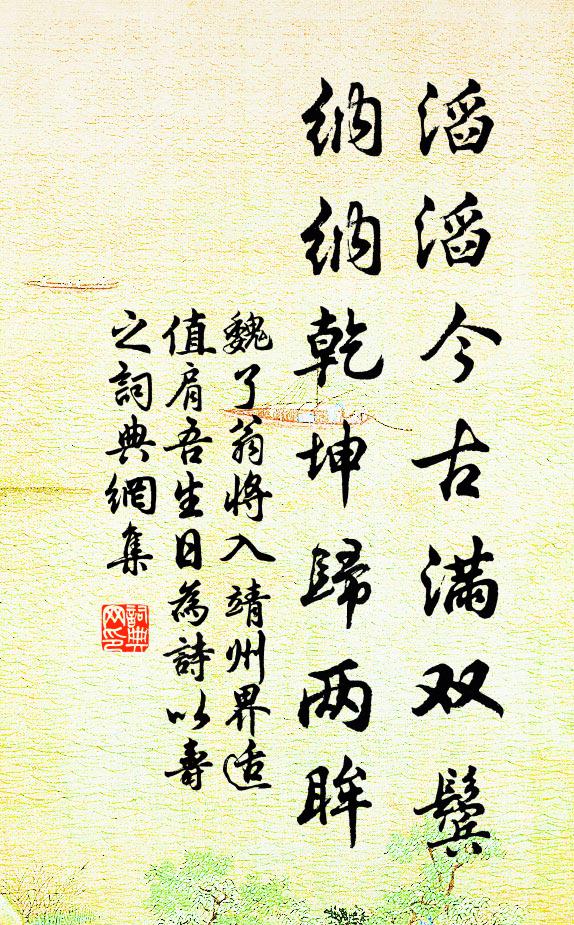 滔滔今古满双鬓
纳纳乾坤歸两眸
魏了翁将入靖州界适
值肩吾生日為詩以壽
之詞典網集
詞典
网印